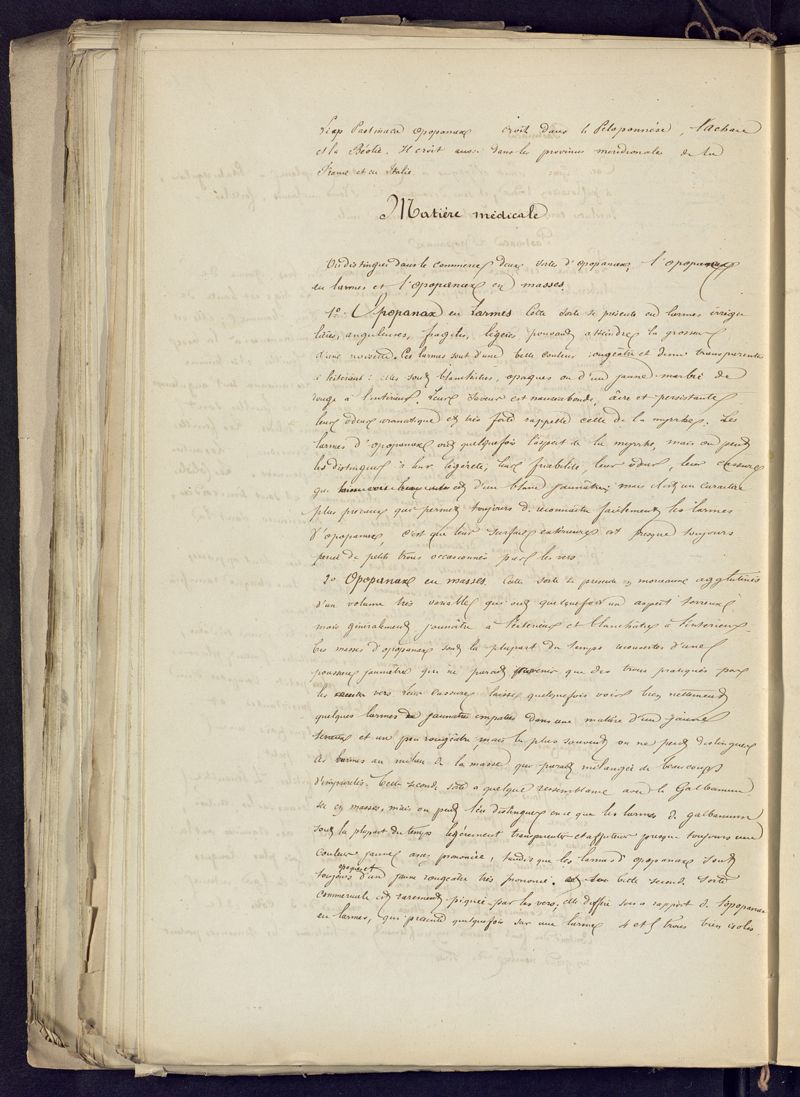 Pastinaca opopanax croit dans le Péloponnèse, l'achaie
et la Béotie. Il croit aussi dans les provinces meridionales de la
France et en Italie
Matière médicale
On distingue dans le commerce deux sortes d'opopanax, l'opopanax
en larmes et l'opopanax en masses.
1º Opopanax en Larmes Cette sorte se présente en larmes irrégu
lières, anguleuses, fragiles, légères pouvant atteindre la grosseur
d'une noisette. Ces larmes sont d'une belle couleur rougeâtre et demi transparente
à l'extérieur: elles sont blanchâtres, opaques ou d'un jaune marbré de
rouge à l'intérieur. Leur saveur est nauseabonde, âcre et persistante,
leur odeur aromatique et très forte rappelle celle de la myrrhe. Les
larmes d'opopanax ont quelquefois l'aspect de la myrrhe, mais on peut
les distinguer à leur légèreté, leur friabilité, leur odeur, leur cassure
qui est d'un blanc jaunâtre; mais il est un caractère
plus précieux qui permet toujours de reconnaitre facilement les larmes
d'opopanax, c'est que leur surface extérieure est presque toujours
percée de petits trous occasionnés par les vers
2º Opopanax en masses. Cette sorte se presente en morceaux agglutinés
d'un volume très variable qui ont quelquefois un aspect terreux
mais généralement jaunâtre à l'extérieur et blanchâtre à l'interieur.
Ces masses d'opopanax sont la plupart du temps recouvertes d'une
poussière jaunâtre qui ne parait provenir que des trous pratiqués par
les vers. Leur cassure laisse quelquefois voir bien nettement
quelques larmes jaunâtres empatées dans une matière d'un jaune
terreux et un peu rougeâtre, mais le plus souvent on ne peut distinguer
les larmes au milieu de la masse qui parait mélangée de beaucoup
d'impuretés. Cette seconde sorte a quelque ressemblance avec le Galbanum
en masses, mais on peut l'en distinguer en ce que les larmes de galbanum
sont la plupart du temps légèrement transparentes et affectent presque toujours une
couleur jaune assez prononcée, tandis que les larmes d'opopanax sont
toujours opaques et d'un jaune rougeâtre très prononcé. Cette seconde sorte
commerciale est rarement piquée par les vers, elle diffère sous ce rapport de l'opopanax
en larmes, qui présente quelquefois sur une larme 4 et 5 trous bien isolés.